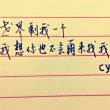 世界剩我一个
我想你也不会再来找我
cy